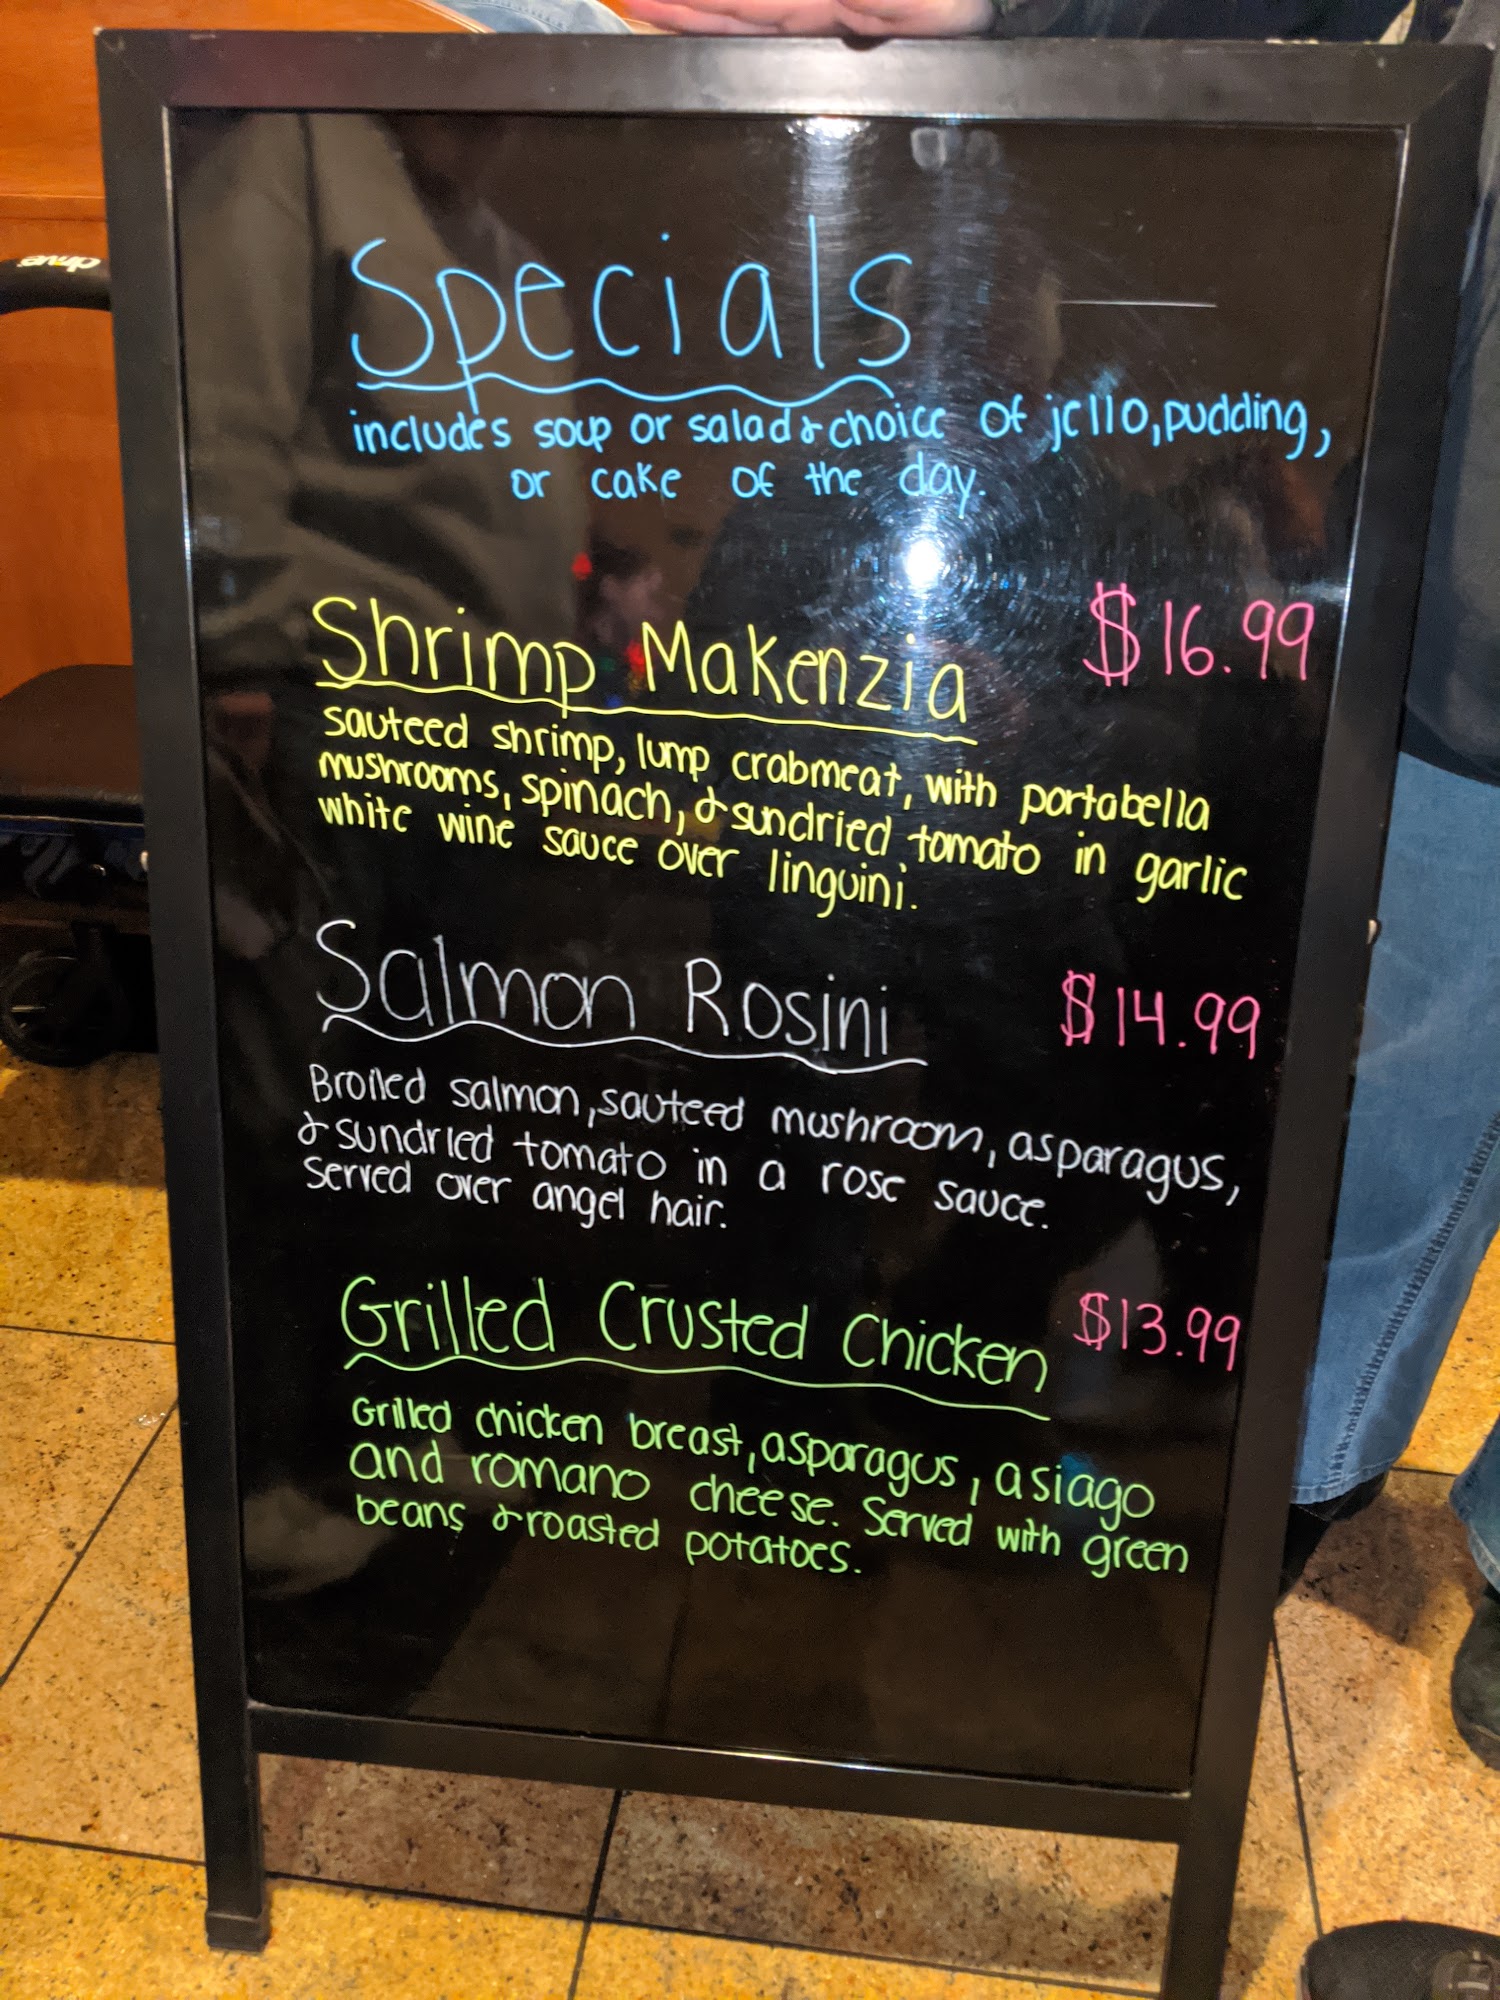 drive
Specials
includes soup or salad & choice of jello, pudding,
or cake of the day.
Shrimp Makenzia $16.99
sauteed shrimp, lump crabmeat, with portabella
mushrooms, spinach, & sundried tomato in garlic
white wine sauce over linguini.
Salmon Rosini $14.99
Broiled salmon, sauteed mushroom, asparagus,
& sundried tomato in a rose sauce.
Served over angel hair.
Grilled Crusted Chicken $13.99
Grilled chicken breast, asparagus, asiago
and romano cheese. Served with green
beans & roasted potatoes.